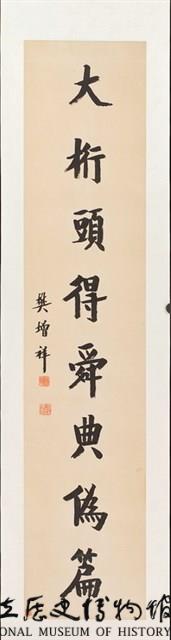 大桁頭得舜典偽篇
樊增祥
立歷史博物館
ONAL MUSEUM OF HISTORY